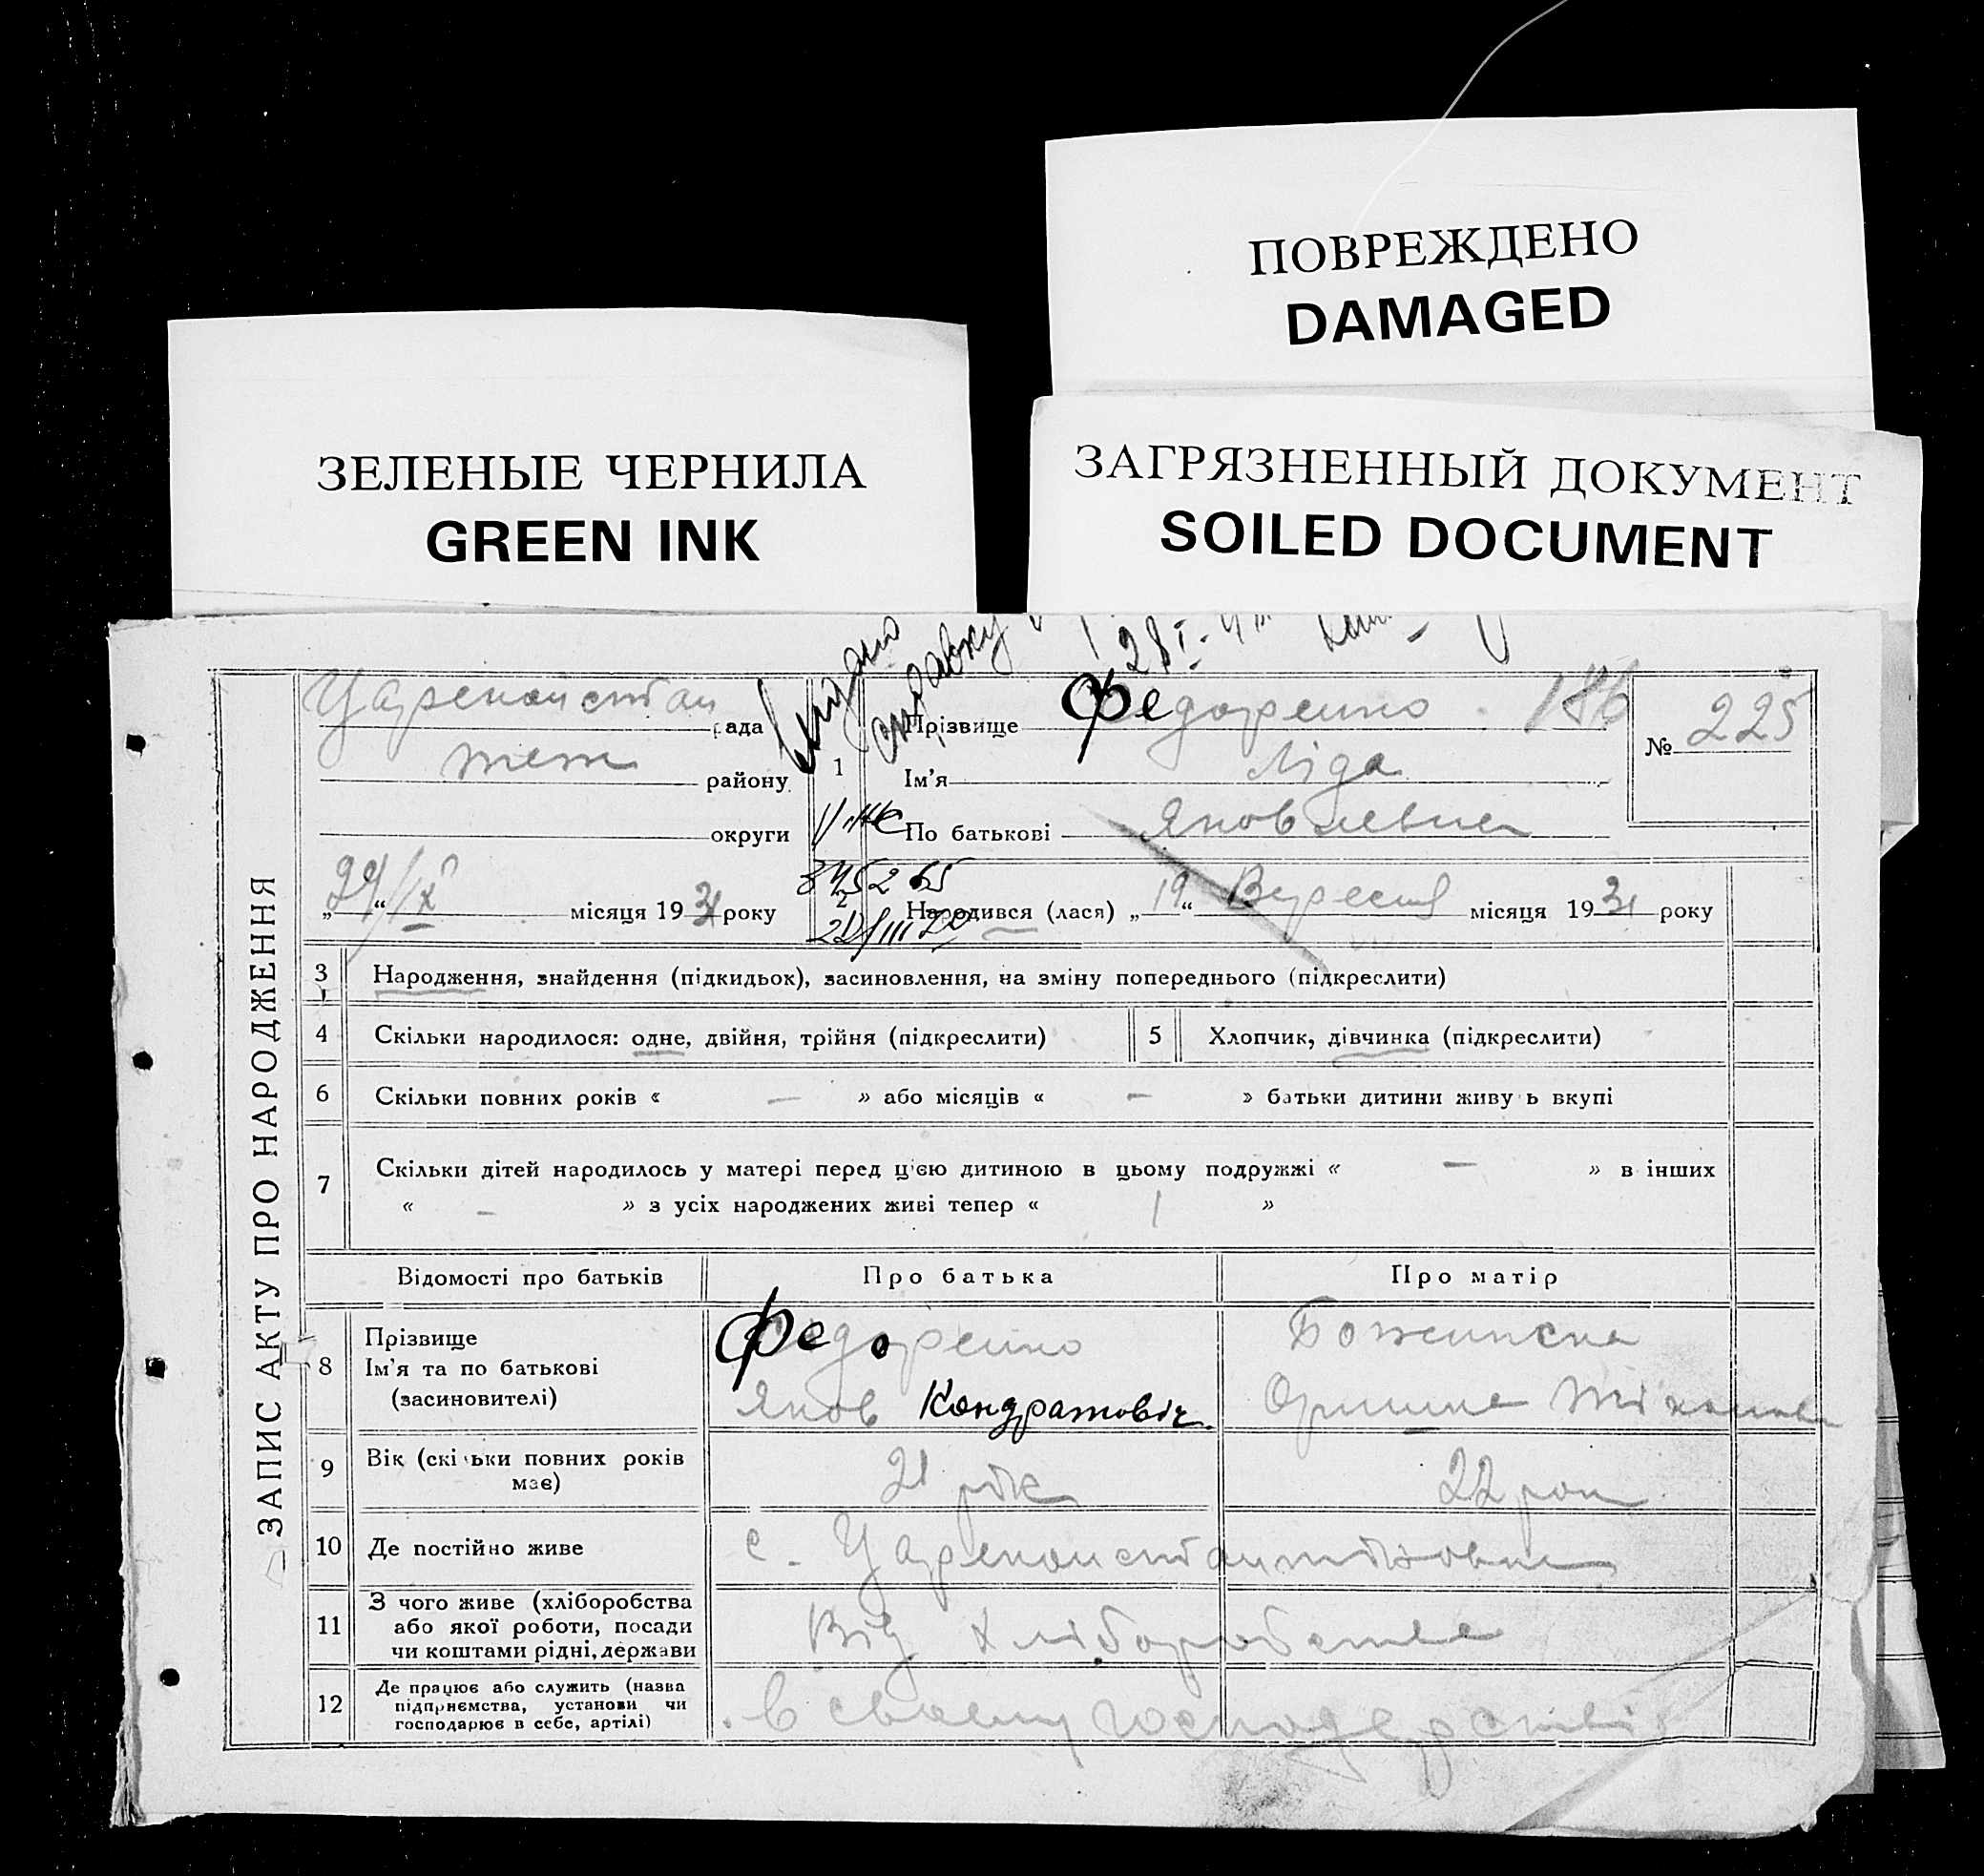 ПОВРЕЖДЕНО
DAMAGED
ЗЕЛЕНЫЕ ЧЕРНИЛА
GREEN INK
ЗАГРЯЗНЕННЫЙ ДОКУМЕНТ
SOILED DOCUMENT
ЗАПИС АКТУ ПРО НАРОДЖЕННЯ
Видано
справку
28 I
Цареконстан рада
теж району
округи
1
Прізвище Федоренко 186
Ім'я Ліда
По батькові Яковлевна
№ 225
„24“ IX місяця 1931 року
2
Народився (лася) „19“ Вересня місяця 1931 року
3 Народження, знайдення (підкидьок), засиновлення, на зміну попереднього (підкреслити)
4 Скільки народилося: одне, двійня, трійня (підкреслити)
5 Хлопчик, дівчинка (підкреслити)
6 Скільки повних років « — » або місяців « — » батьки дитини живуть вкупі
7 Скільки дітей народилось у матері перед цією дитиною в цьому подружжі « — » в інших
« — » з усіх народжених живі тепер « 1 »
Відомості про батьків Про батька Про матір
8 Прізвище
Ім'я та по батькові
(засиновителі)
Федоренко
Яков Кондратовіч
Оришка
9 Вік (скільки повних років
має)
21 рік
22 рок
10 Де постійно живе
с. Цареконстантіновка
11 З чого живе (хліборобства
або якої роботи, посади
чи коштами рідні, держави
Від хліборобства
12 Де працює або служить (назва
підприємства, установи чи
господарює в себе, артілі)
в своєму господарстві